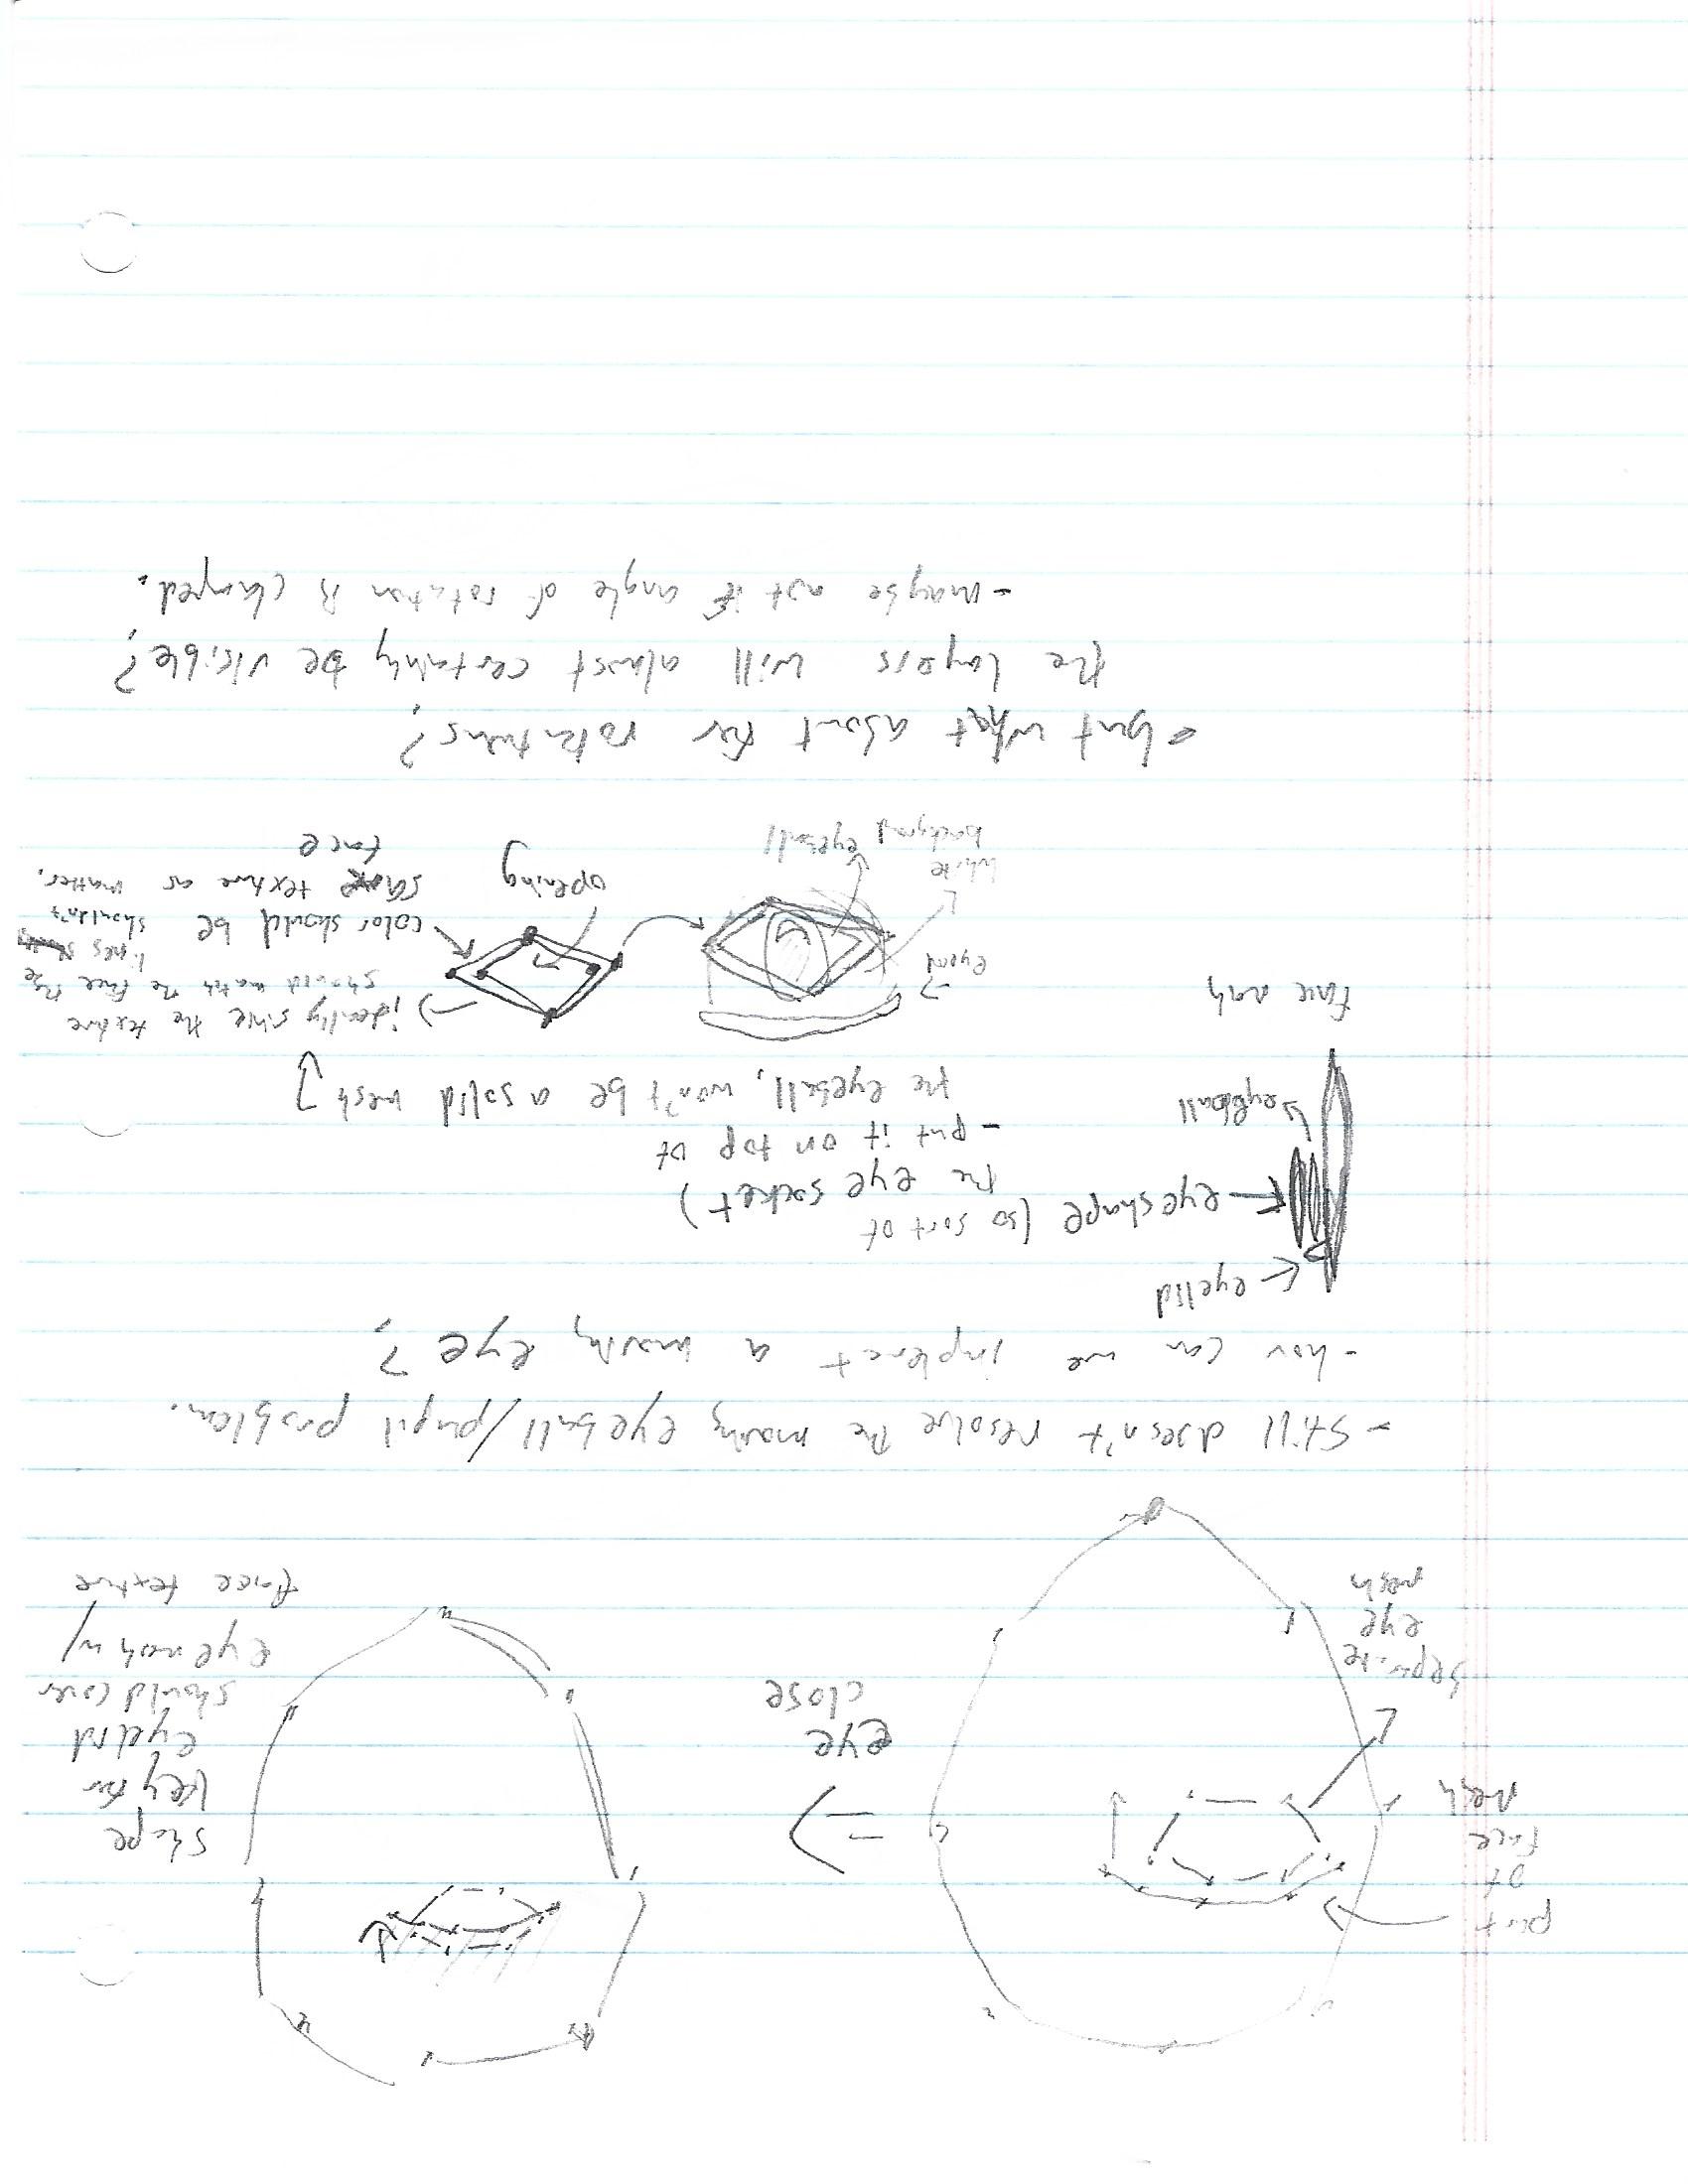 part
of
face
mesh
separate
eye
mesh
=>
eye
close
shape
key for
eyelid
should cover
eye mesh w/
face texture
- Still doesn't resolve the moving eyeball/pupil problem.
- how can we implement a moving eye?
eyelid
eyeshape (so sort of
the eye socket)
- put it on top of
the eyeball, won't be a solid mesh
eyeball
face mesh
eyelid
white
background
eyeball
opening
ideally since the texture
should match the face the
lines
shouldn't
matter.
color should be
same texture as
face
- but what about for rotations?
the layers will almost certainly be visible?
- maybe not if angle of rotation is clamped.